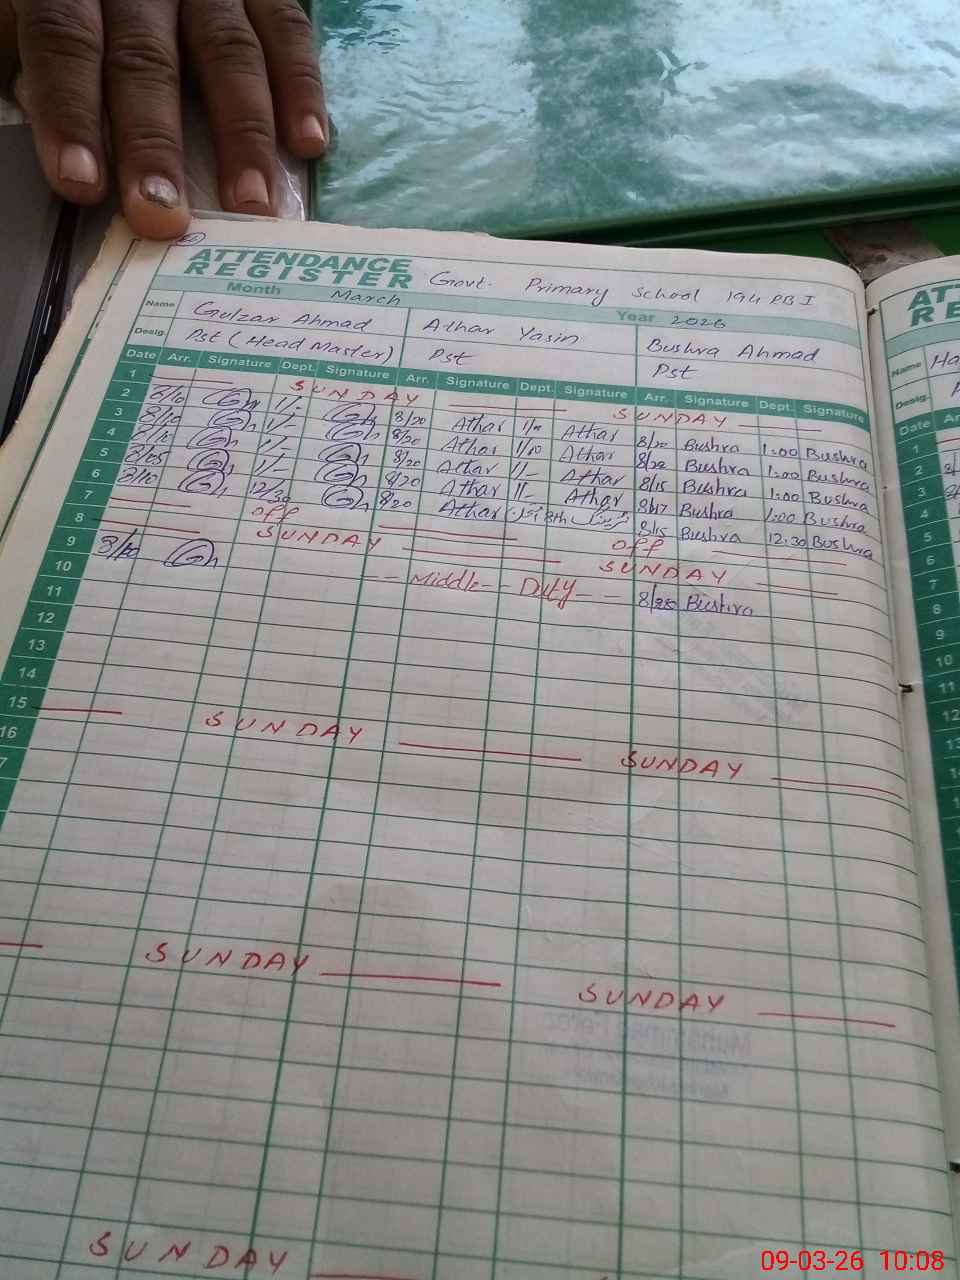 ATTENDANCE
REGISTER
Govt. Primary School 194 PB I
Month March Year 2026
Name Gulzar Ahmad Athar Yasin Bushra Ahmad
Desig. Pst (Head Master) Pst Pst
Date Arr. Signature Dept. Signature Arr. Signature Dept. Signature Arr. Signature Dept. Signature
1 SUNDAY SUNDAY
2 8/10 1/- 8/20 Athar 1/00 Athar 8/20 Bushra 1:00 Bushra
3 8/10 1/- 8/20 Athar 1/00 Athar 8/20 Bushra 1:00 Bushra
4 8/10 1/- 8/20 Athar 1/- Athar 8/15 Bushra 1:00 Bushra
5 8/05 1/- 8/20 Athar 1/- Athar 8/17 Bushra 1:00 Bushra
6 8/10 12/30 8/20 Athar 8th 8/15 Bushra 12:30 Bushra
7 OFF OFF
8 SUNDAY SUNDAY
9 8/20 Middle Duty 8/20 Bushra
10
11
12
13
14
15 SUNDAY SUNDAY
16
7
SUNDAY SUNDAY
SUNDAY
ATT
RE
Name Ha
Desig.
Date Ar
1
2
3
4
5
6
7
8
9
10
11
12
13
09-03-26 10:08